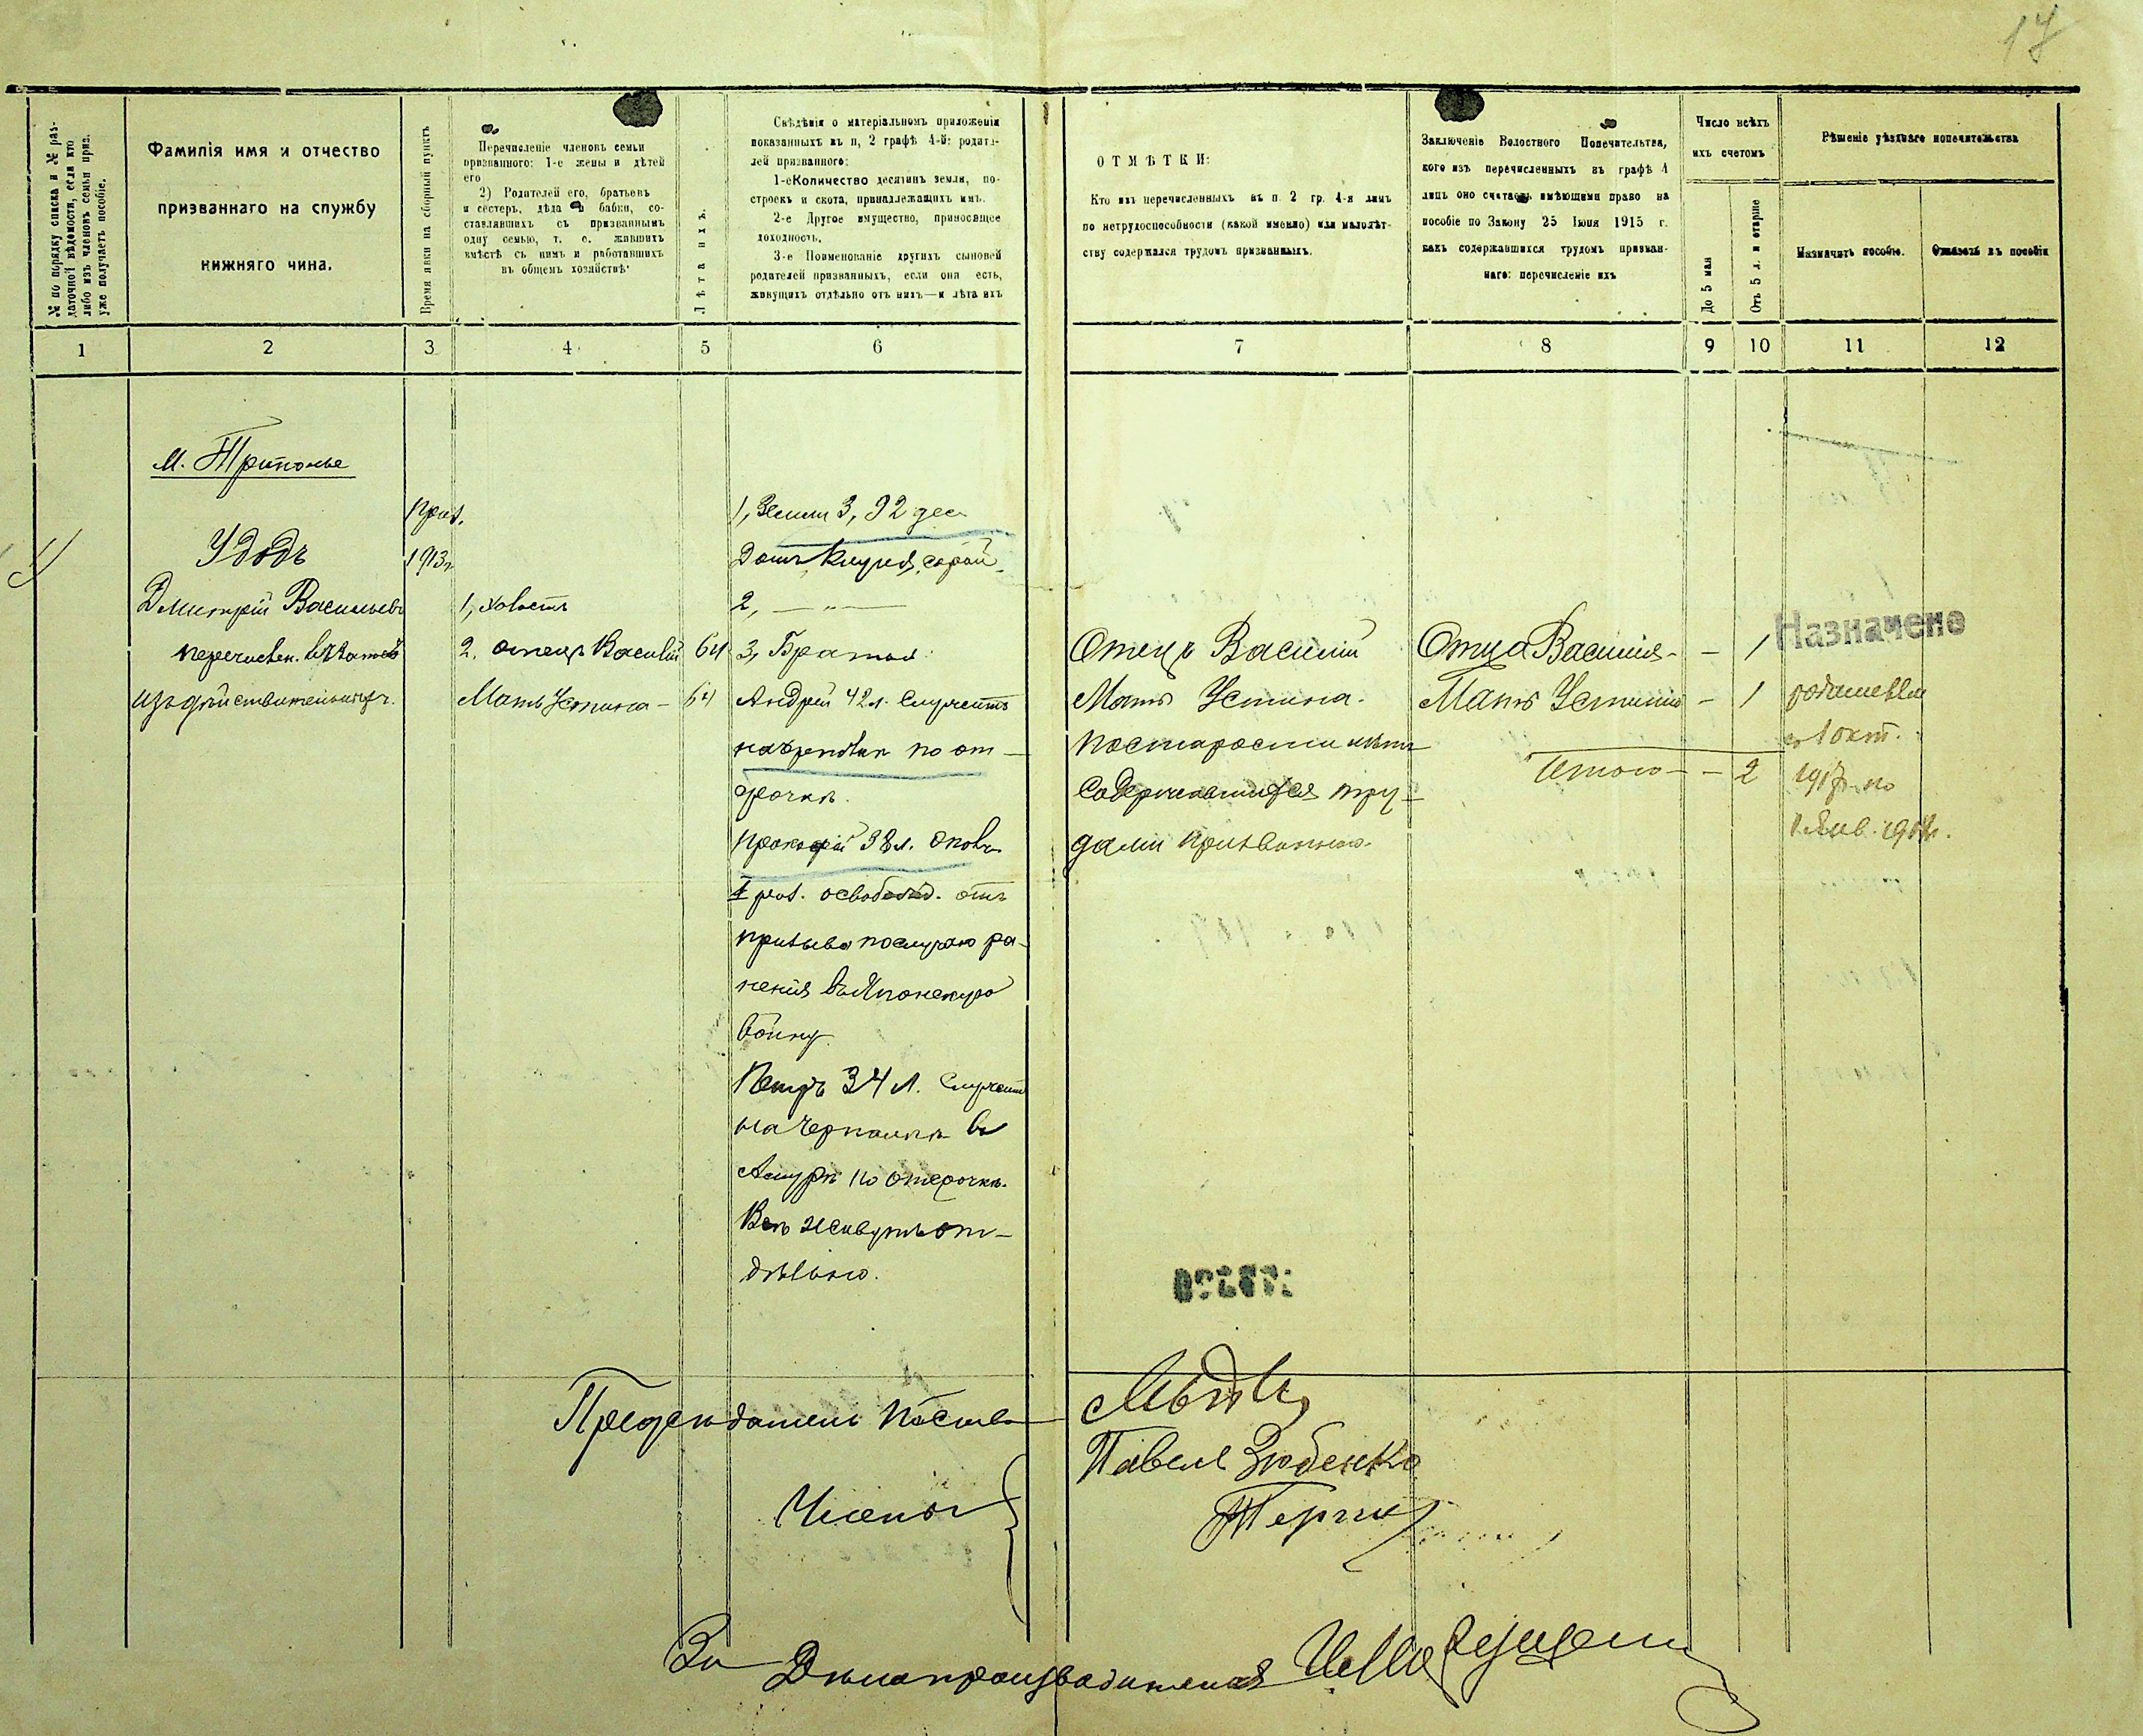 17
№ по порядку списка и № раз-
даточной вѣдомости, если кто
либо изъ членовъ семьи приз.
уже получаетъ пособіе.
Фамилія имя и отчество
призваннаго на службу
нижняго чина.
Время явки на сборный пунктъ
Перечисленіе членовъ семьи
призваннаго: 1-е жены и дѣтей
его
2) Родителей его, братьевъ
и сестеръ, дѣда и бабки, со-
ставлявшихъ съ призваннымъ
одну семью, т. е. жившихъ
вмѣстѣ съ нимъ и работавшихъ
въ общемъ хозяйствѣ
Лѣта ихъ.
Свѣдѣнія о матеріальномъ приложеніи
показанныхъ въ п, 2 графѣ 4-й: родите-
лей призваннаго:
1-еКоличество десятинъ земли, по-
строекъ и скота, принадлежащихъ имъ.
2-е Другое имущество, приносящее
доходность.
3-е Поименованіе другихъ сыновей
родителей призванныхъ, если они есть,
живущихъ отдѣльно отъ нихъ—и лѣта ихъ
ОТМѢТКИ:
Кто изъ перечисленныхъ въ п 2 гр. 4-я лицъ
по нетрудоспособности (какой именно) или малолѣт-
ству содержался трудомъ призванныхъ.
Заключеніе Волостного Попечительтва,
кого изъ перечисленныхъ въ графѣ 4
лицъ оно считаетъ имѣющими право на
пособіе по Закону 25 Іюня 1915 г.
какъ содержавшихся трудомъ призван-
наго: перечисленіе ихъ
Число всѣхъ
ихъ счетомъ
До 5 мая
Отъ 5 л. и старше
Рѣшеніе уѣзднаго попечительства
Назначить пособіе.
Отказать въ пособіи
1 2 3 4 5 6 7 8 9 10 11 12
М. Триполье
Удодъ
Дмитрій Васильевъ
перечислен.
изъ дѣйствительной
1913г
1, холостъ
2. отецъ Василій 64
Мать Устина - 64
1, Земли 3, 92 дес
Домъ Клуня, сарай.
2, — „ —
3, Братья:
Андрей 42 л. служитъ
по от-
срочкѣ.
Прокофій 38 л.
освобожд. отъ
призыва по случаю ра-
ненія въ Японскую
войну.
Петръ 34 л. служитъ
на въ
по отсрочкѣ.
Всѣ живутъ от-
дѣльно.
Отецъ Василій
Мать Устина.
По старости лѣтъ
содержавшихся тру-
дами призваннаго.
Отца Василія - - 1
Мать Устинію - 1
Итого - - 2
Назначено
с 1 окт.
1917г. по
1 Янв. 1918г.
Предсѣдатель
Павелъ Зюбенко
Члены
За Дѣлопроизводителя